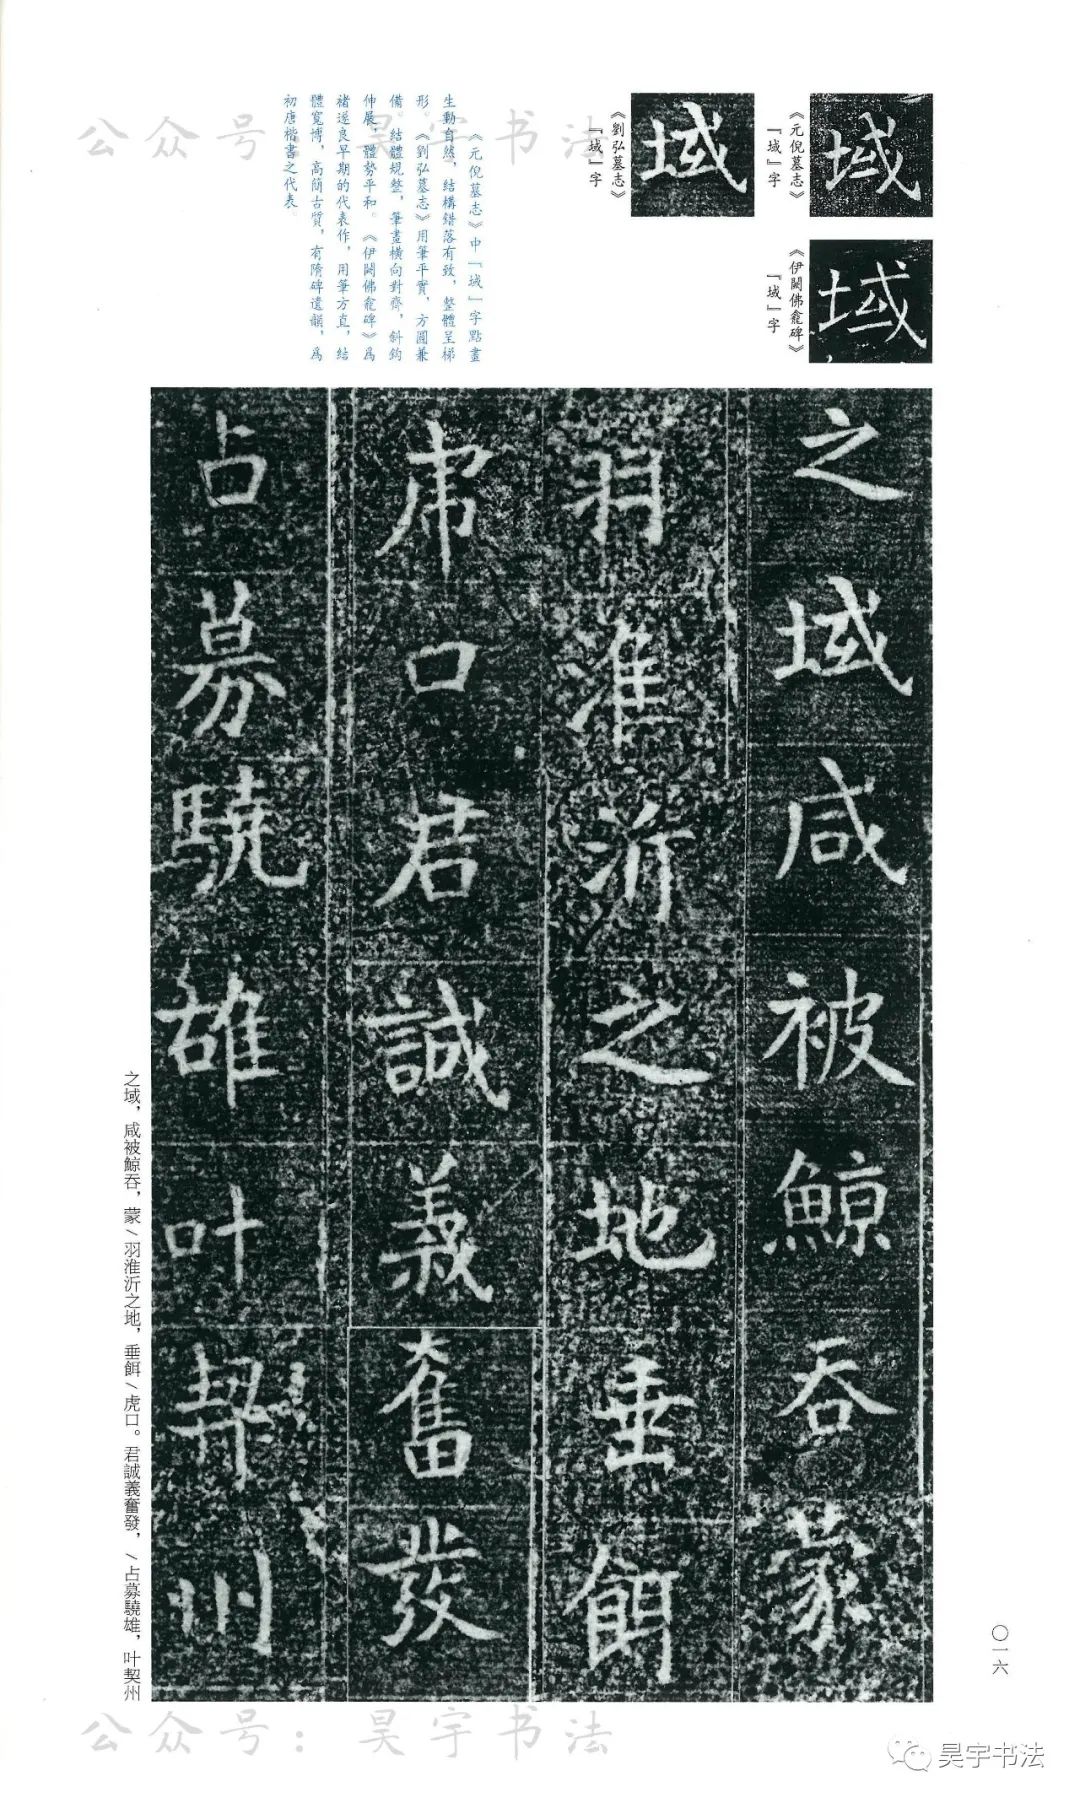 《元倪墓志》
『域』字
《伊闕佛龕碑》
『域』字
《劉弘墓志》
『域』字
域
域
域
《元倪墓志》中『域』字點畫
生動自然，結構錯落有致，整體呈梯
形。《劉弘墓志》用筆平實，方圓兼
備。結體規整，筆畫橫向對齊，斜鈎
伸展，體勢平和。《伊闕佛龕碑》爲
褚遂良早期的代表作，用筆方直，結
體寬博，高簡古質，有隋碑遺韻，爲
初唐楷書之代表。
之域咸被鯨吞蒙
羽淮沂之地垂餌
虎口君誠義奮發
占募驍雄叶契州
之域，咸被鯨吞，蒙/羽淮沂之地，垂餌/虎口。君誠義奮發，/占募驍雄，叶契州
〇一六
公众号：昊宇书法
公众号：昊宇书法
昊宇书法